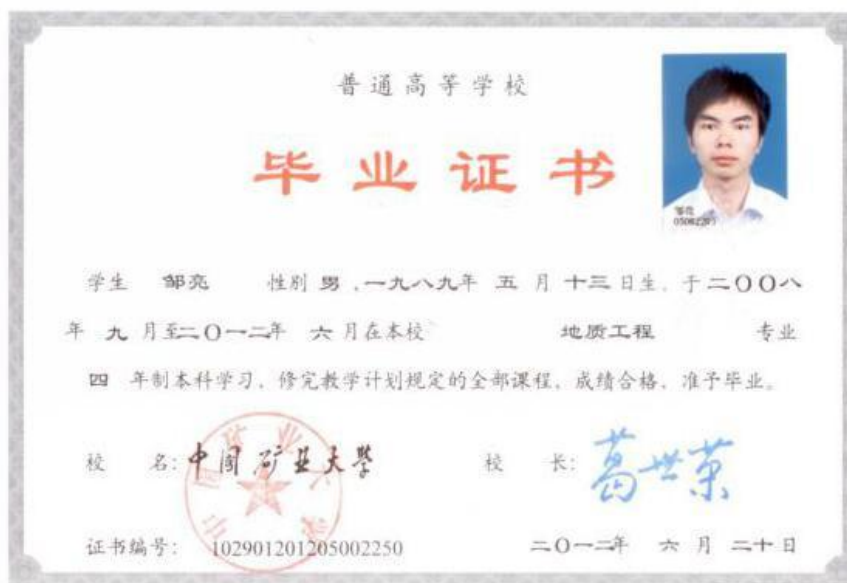 普通高等学校
毕业证书
邹亮
05082203
学生 邹亮 性别 男，一九八九年 五 月 十三 日生，于 二〇〇八
年 九 月至二〇一二年 六 月在本校 地质工程 专业
四 年制本科学习，修完教学计划规定的全部课程，成绩合格，准予毕业。
校 名：中国矿业大学 校 长：葛世荣
中国矿业大学
证书编号： 102901201205002250 二〇一二年 六 月 二十日